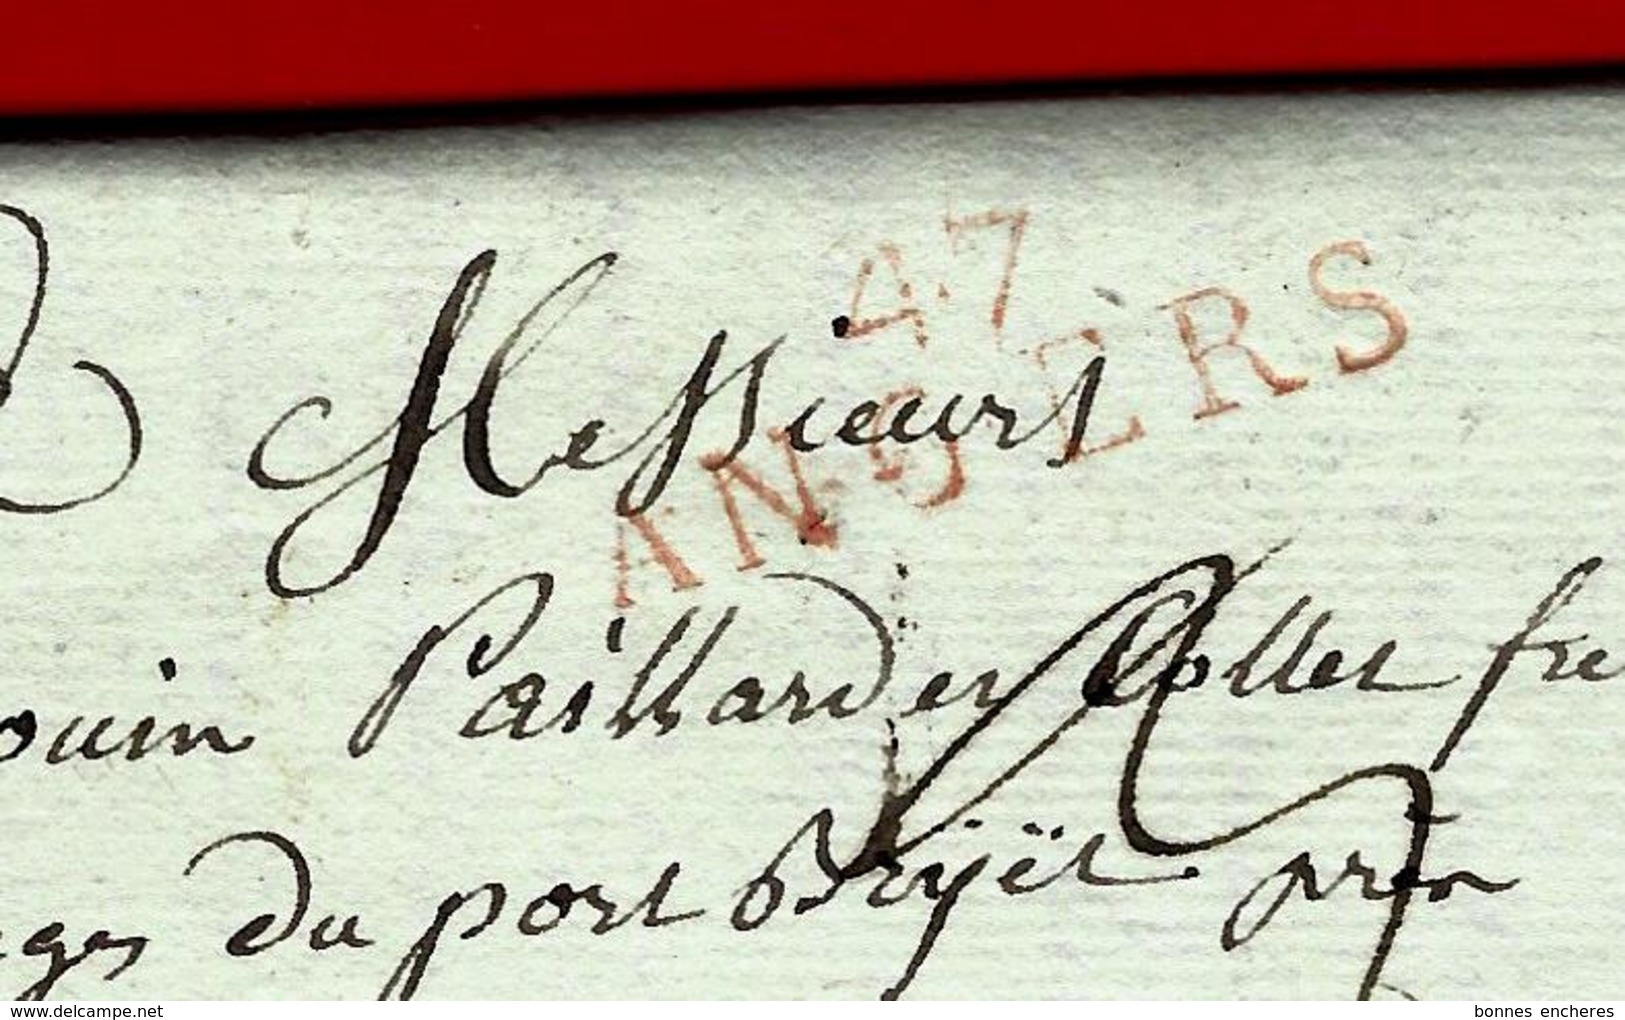 47
ANGERS
Messieurs
ouin Paillard et Collet fre
ages du port Bryët près
www.delcampe.net
bonnes encheres